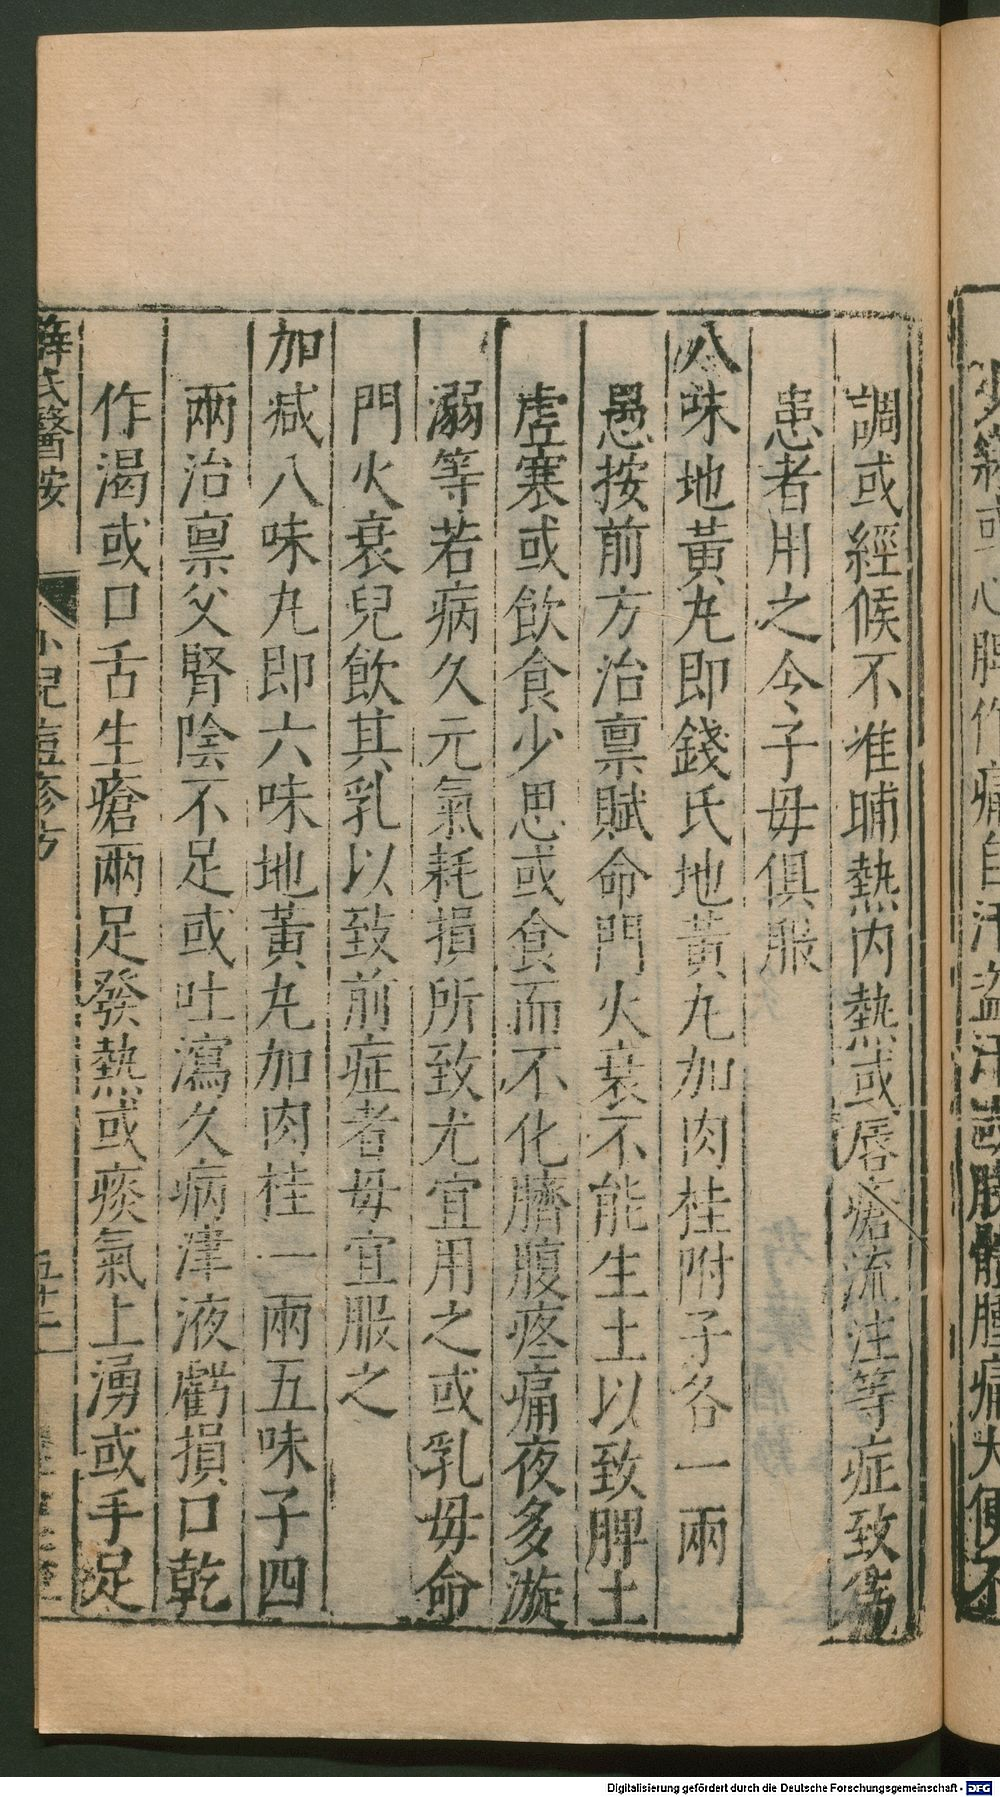 調或經候不准晡熱內熱或唇瘡流注等症致傷
患者用之令子母俱服
八味地黃丸即錢氏地黃丸加肉桂附子各一兩
愚按前方治禀賦命門火衰不能生土以致脾土
虛寒或飲食少思或食而不化臍腹疼痛夜多漩
溺等若病久元氣耗損所致尤宜用之或乳母命
門火衰兒飲其乳以致前症者母宜服之
加减八味丸即六味地黃丸加肉桂一兩五味子四
兩治禀父腎陰不足或吐瀉久病津液虧損口乾
作渴或口舌生瘡兩足發熱或痰氣上湧或手足
薛氏醫按 小兒痘疹方 五十二
或心脾作痛自汗盜汗或膝體腫痛大便不
Digitalisierung gefördert durch die Deutsche Forschungsgemeinschaft - DFG